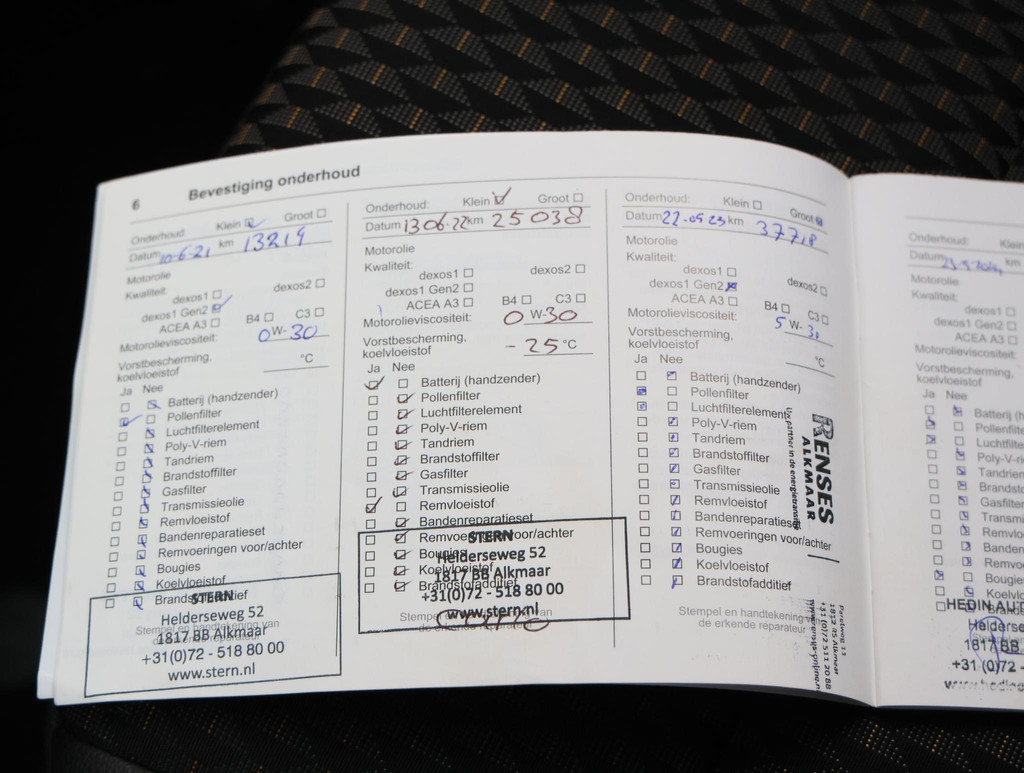 6 Bevestiging onderhoud
Onderhoud: Klein Groot
Datum 10-6-21 km 13219
Motorolie
Kwaliteit:
dexos1 dexos2
dexos1 Gen2
ACEA A3 B4 C3
Motorolieviscositeit: 0 W- 30
Vorstbescherming,
koelvloeistof °C
Ja Nee
Batterij (handzender)
Pollenfilter
Luchtfilterelement
Poly-V-riem
Tandriem
Brandstoffilter
Gasfilter
Transmissieolie
Remvloeistof
Bandenreparatieset
Remvoeringen voor/achter
Bougies
Koelvloeistof
Brandstofadditief
Stempel en handtekening van
de erkende reparateur
STERN
Helderseweg 52
1817 BB Alkmaar
+31(0)72 - 518 80 00
www.stern.nl
Onderhoud: Klein Groot
Datum 13 06-22 km 25038
Motorolie
Kwaliteit:
dexos1 dexos2
dexos1 Gen2
ACEA A3 B4 C3
Motorolieviscositeit: 0 W-30
Vorstbescherming,
koelvloeistof - 25 °C
Ja Nee
Batterij (handzender)
Pollenfilter
Luchtfilterelement
Poly-V-riem
Tandriem
Brandstoffilter
Gasfilter
Transmissieolie
Remvloeistof
Bandenreparatieset
Remvoeringen voor/achter
Bougies
Koelvloeistof
Brandstofadditief
Stempel en handtekening van
de erkende reparateur
STERN
Helderseweg 52
1817 BB Alkmaar
+31(0)72 - 518 80 00
www.stern.nl
Onderhoud: Klein Groot
Datum 22-05-23 km
Motorolie
Kwaliteit:
dexos1 dexos2
dexos1 Gen2
ACEA A3 B4 C3
Motorolieviscositeit: 5 W- 30
Vorstbescherming,
koelvloeistof °C
Ja Nee
Batterij (handzender)
Pollenfilter
Luchtfilterelement
Poly-V-riem
Tandriem
Brandstoffilter
Gasfilter
Transmissieolie
Remvloeistof
Bandenreparatieset
Remvoeringen voor/achter
Bougies
Koelvloeistof
Brandstofadditief
Stempel en handtekening van
de erkende reparateur
RENSES
ALKMAAR
Uw partner in de energietransitie
1812 RS Alkmaar
+31 (0)72 511 20 88
Onderhoud: Klein
Datum km
Motorolie
Kwaliteit:
dexos1
dexos1 Gen2
ACEA A3
Motorolieviscositeit:
Vorstbescherming,
koelvloeistof
Ja Nee
Batterij (h
Pollenfilte
Luchtfilte
Poly-V-ri
Tandrien
Brandsto
Gasfilter
Transmi
Remvlo
Banden
Remvo
Bougies
Koelvlo
HEDIN AUT
Helderse
1817 BB
+31 (0)72 -